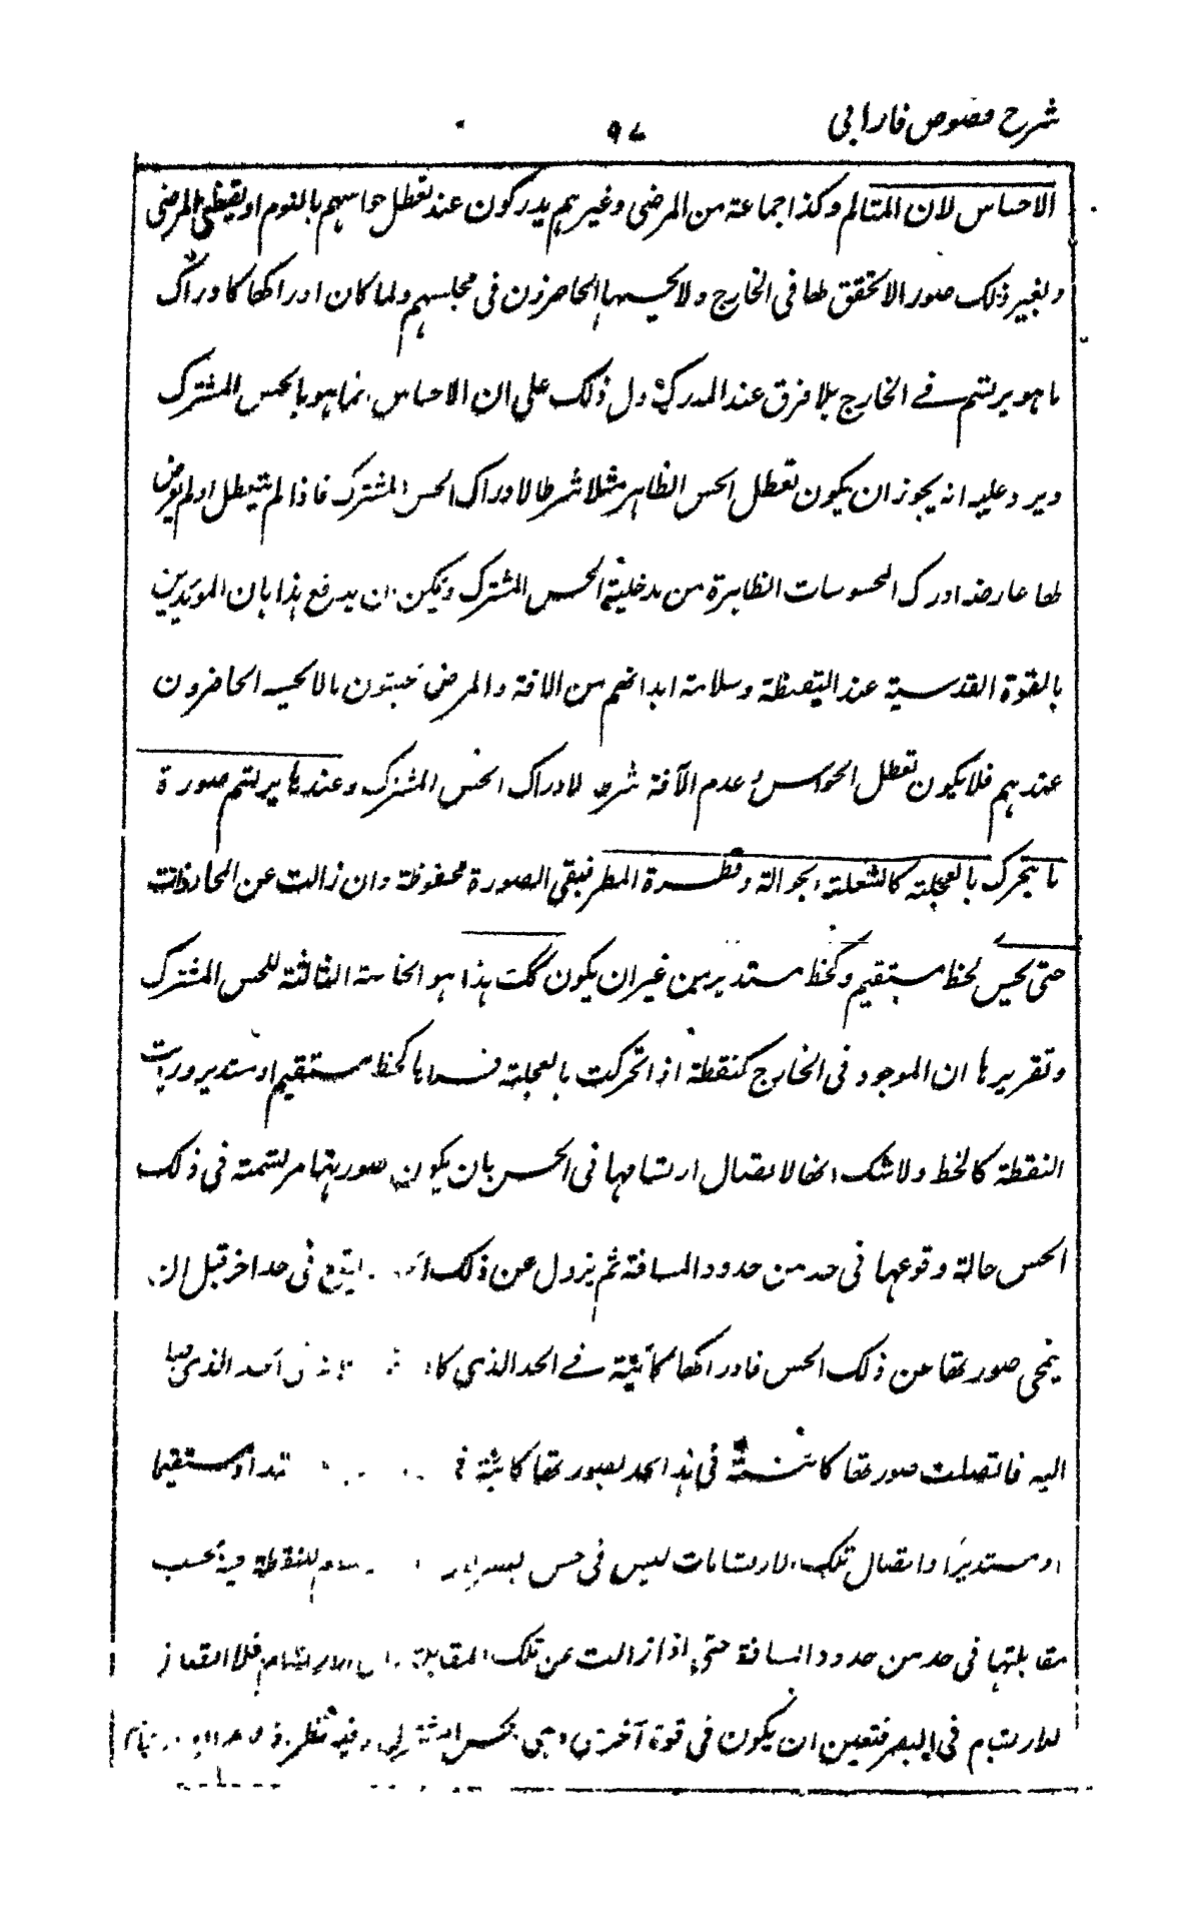 شرح فصوص فارابى
٩٧
الاحساس لان المتالم وكذا جماعة من المرضى وغيرهم يدركون عند تعطل حواسهم بالنوم او يقظى المرضى
ولغير ذلك صور الا تحقق لها فى الخارج ولا يحسها الحاضرون فى مجلسهم ولما كان ادراكها كادراك
ما هو يرتسم فى الخارج بلا فرق عند المدرك دل ذلك على ان الاحساس انما هو بالحس المشترك
ويرد عليه انه يجوز ان يكون تعطل الحس الظاهر مثلا شرطا لادراك الحس المشترك فاذا لم يتعطل او لم يعرض
لها عارض ادرك المحسوسات الظاهرة من مدخلية الحس المشترك ويمكن ان يدفع هذا بان المويدين
بالقوة القدسية عند اليقظة وسلامة ابدانهم من الافة والمرض يحسون بما لا يحسه الحاضرون
عندهم فلا يكون تعطل الحواس وعدم الآفة شرط لادراك الحس المشترك وعندها يرتسم صورة
ما يتحرك بالعجلة كالشعلة الجوالة وقطرة المطر فيبقى الصورة محفوظة وان زالت عن المحاذات
حتى يحس لخط مستقيم وكخط مستدير من غير ان يكون كك هذا هو الخاصة الثالثة للحس المشترك
وتقريرها ان الموجود فى الخارج كنقطة اذا تحركت بالعجلة فنراها كخط مستقيم او مستدير ورويت
النقطة كالخط ولا شك انها لاتصال ارتسامها فى الحس بان يكون صورتها مرتسمة فى ذلك
الحس حالة وقوعها فى حد من حدود المسافة ثم يزول عن ذلك يقع فى حد اخر قبل ان
ينمحى صورتها عن ذلك الحس فادراكها كائنة فى الحد الذى الحد الذى صار
اليه فاتصلت صورتها كائنة فى هذا الحد بصورتها كائنة مستقيما
او مستديرا واتصال تلك الارتسامات ليس فى حس البصر للنقطة فيه بحسب
مقابلتها فى حد من حدود المسافة حتى اذا زالت عن تلك المقابلة الارتسام فلا اتصال
للارتسام فى البصر فتعين ان يكون فى قوة آخرى وهى الحس المشترك وفيه نظر